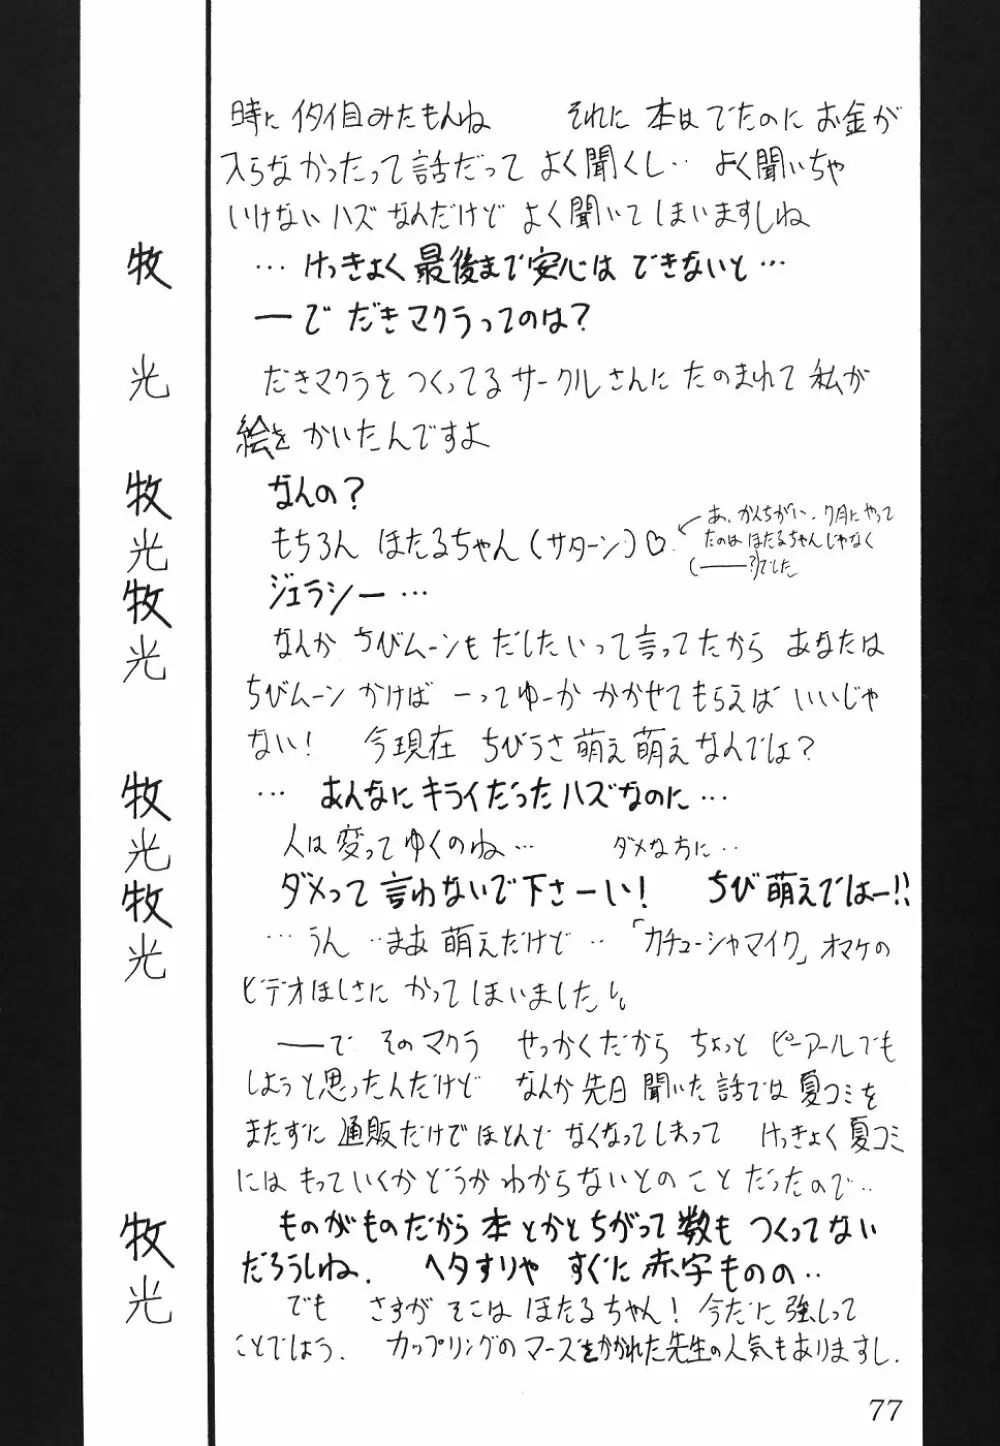 時に イタイ目みたもんね　それに 本は でたのに お金が
入らなかったって 話だって よく聞くし‥ よく聞いちゃ
いけないハズ なんだけど よく聞いて しまいますしね
牧 … けっきょく 最後まで 安心は できないと…
ーで だきマクラってのは？
光 だきマクラを つくってる サークルさんに たのまれて 私が
絵を かいたんですよ
牧 なんの？
光 もちろん ほたるちゃん（サターン）♡
← あ、かんちがい、7月にやって
たのは ほたるちゃんじゃなく
（――？）でした
牧 ジェラシー…
光 なんか ちびムーンも だしたいって 言ってたから あなたは
ちびムーン かけば ーってゆーか かかせて もらえば いいじゃ
ない！ 今現在 ちびうさ 萌え萌え なんでは？
牧 … あんなに キライだったハズなのに…
光 人は 変って ゆくのね… ダメな方に‥
牧 ダメって 言わないで 下さーい！ ちび 萌えではー!!
光 …うん ‥まあ 萌えだけど‥ 「カチューシャマイク」オマケの
ビデオほしさに かって しまいました
――で そのマクラ せっかくだから ちょっと ピーアールでも
しようと思ったんだけど なんか 先日 聞いた 話では 夏コミを
またずに 通販だけで ほとんど なくなってしまって けっきょく 夏コミ
には もっていくか どうか わからないとの こと だったので‥
牧 ものがものだから 本とかと ちがって 数も つくってない
だろうしね. ヘタすりゃ すぐに 赤字ものの‥
光 でも さすが そこは ほたるちゃん！ 今だに 強しって
ことでしょう. カップリングの マーズをかかれた 先生の人気も ありますし.
77